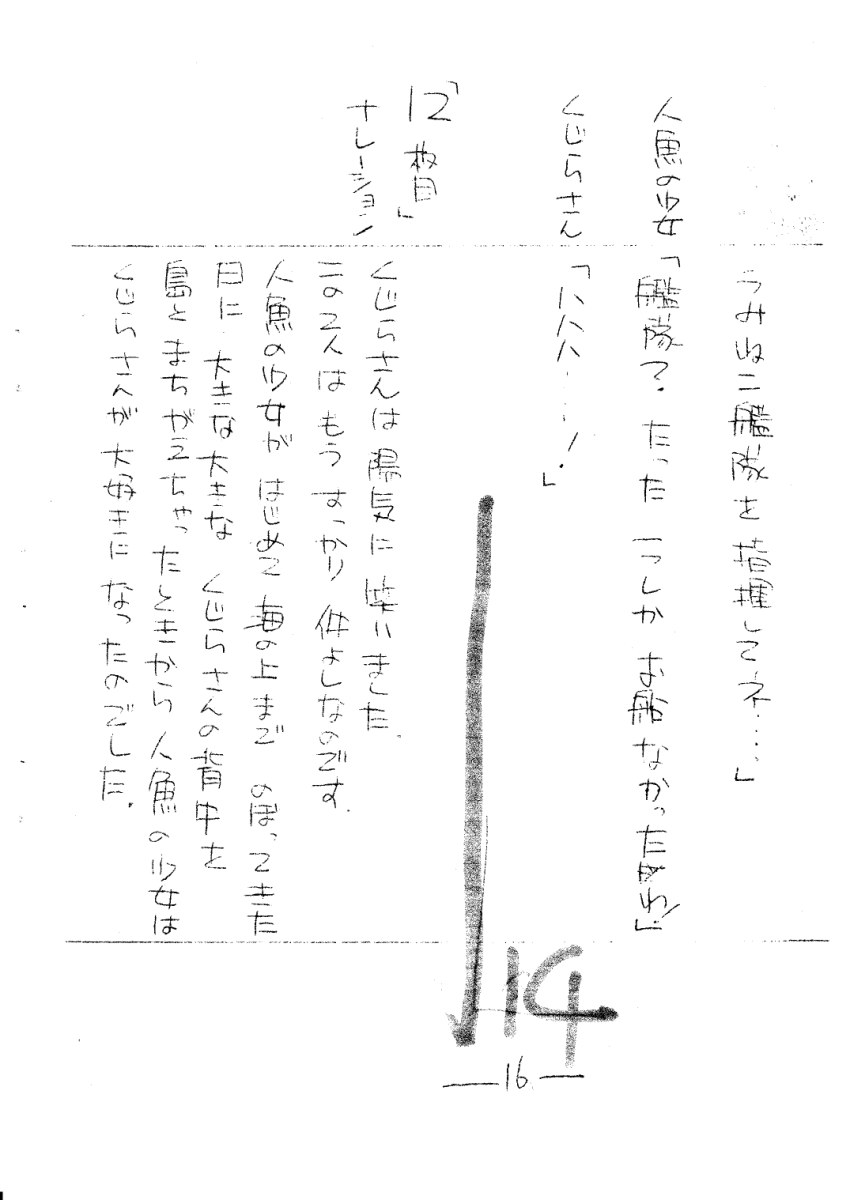 うみねこ艦隊を指揮してネ……」
人魚の少女「艦隊って たった 一つしか お船なかったわ!」
くじらさん「ハハハ……!」
「12枚目」
ナレーション
くじらさんは 陽気に 笑いました。
この2人は もう すっかり 仲よしなのです。
人魚の少女が はじめて 海の上まで のぼってきた
日に 大きな大きな くじらさんの背中を
島と まちがえちゃったときから 人魚の少女は
くじらさんが 大好きに なったのでした。
14
—16—